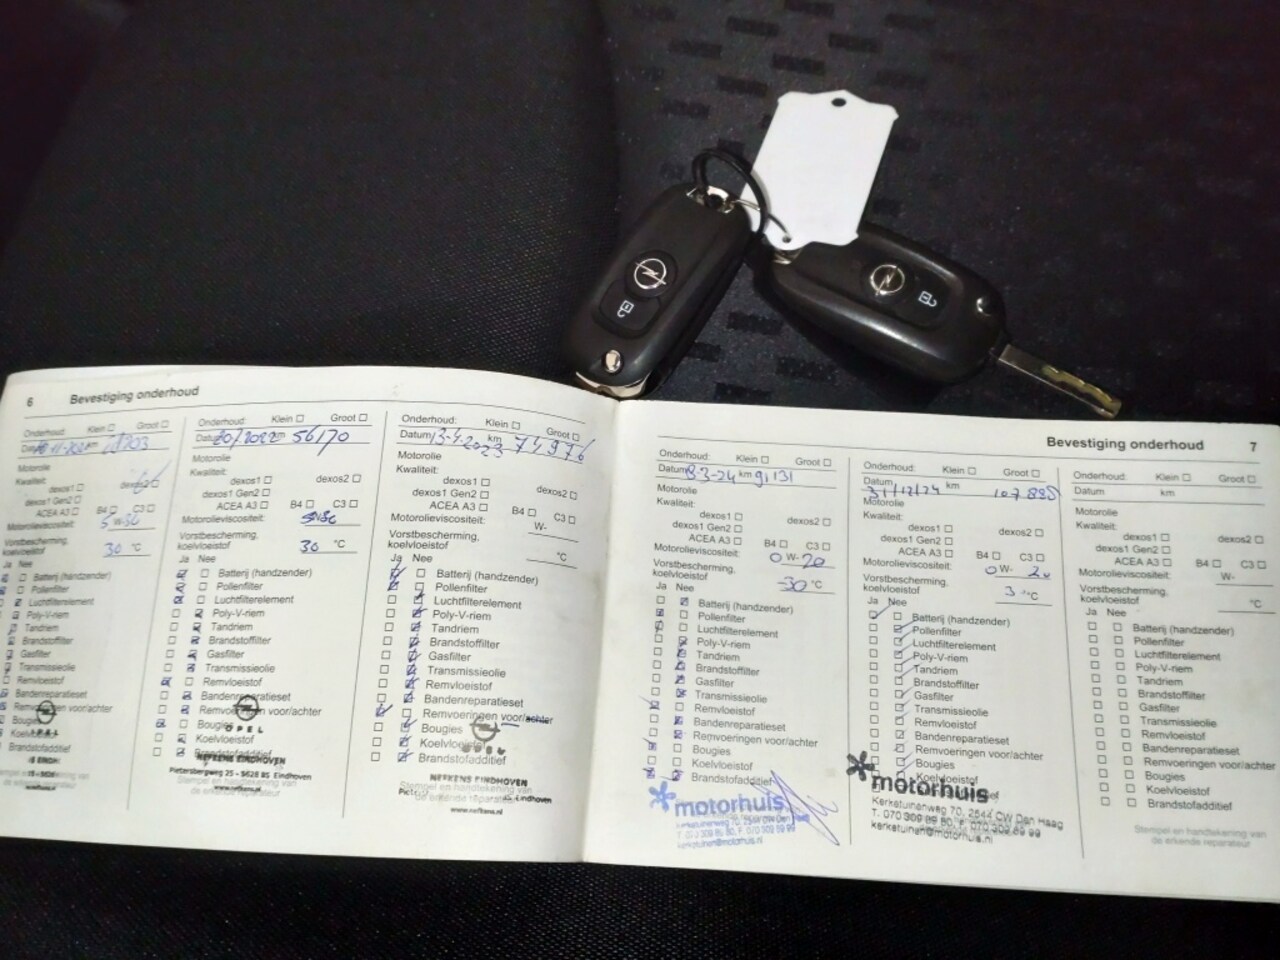 6 Bevestiging onderhoud
Onderhoud: Klein Groot
km
Motorolie
Kwaliteit:
dexos1 dexos2
dexos1 Gen2
ACEA A3 B4 C3
Motorolieviscositeit:
W-
Vorstbescherming,
koelvloeistof
30 °C
Ja Nee
Batterij (handzender)
Pollenfilter
Luchtfilterelement
Poly-V-riem
Tandriem
Brandstoffilter
Gasfilter
Transmissieolie
Remvloeistof
Bandenreparatieset
Remvoeringen voor/achter
Bougies
Koelvloeistof
Brandstofadditief
Onderhoud: Klein Groot
Datum 56170
Motorolie
Kwaliteit:
dexos1 dexos2
dexos1 Gen2
ACEA A3 B4 C3
Motorolieviscositeit:
Vorstbescherming,
koelvloeistof
30 °C
Ja Nee
Batterij (handzender)
Pollenfilter
Luchtfilterelement
Poly-V-riem
Tandriem
Brandstoffilter
Gasfilter
Transmissieolie
Remvloeistof
Bandenreparatieset
Remvoeringen voor/achter
Bougies
OPEL
Koelvloeistof
Brandstofadditief
NEFKENS EINDHOVEN
Pietersbergweg 25 - 5628 BS Eindhoven
Stempel en handtekening van
de erkende reparateur
www.nefkens.nl
Onderhoud: Klein Groot
Datum 13-4-2023 km 74976
Motorolie
Kwaliteit:
dexos1 dexos2
dexos1 Gen2
ACEA A3 B4 C3
Motorolieviscositeit:
W-
Vorstbescherming,
koelvloeistof
°C
Ja Nee
Batterij (handzender)
Pollenfilter
Luchtfilterelement
Poly-V-riem
Tandriem
Brandstoffilter
Gasfilter
Transmissieolie
Remvloeistof
Bandenreparatieset
Remvoeringen voor/achter
Bougies
Koelvloeistof
Brandstofadditief
NEFKENS EINDHOVEN
Stempel en handtekening van
de erkende reparateur
Eindhoven
www.nefkens.nl
Bevestiging onderhoud 7
Onderhoud: Klein Groot
Datum 8-3-24 km 91131
Motorolie
Kwaliteit:
dexos1 dexos2
dexos1 Gen2
ACEA A3 B4 C3
Motorolieviscositeit: 0 W- 20
Vorstbescherming,
koelvloeistof
-30 °C
Ja Nee
Batterij (handzender)
Pollenfilter
Luchtfilterelement
Poly-V-riem
Tandriem
Brandstoffilter
Gasfilter
Transmissieolie
Remvloeistof
Bandenreparatieset
Remvoeringen voor/achter
Bougies
Koelvloeistof
Brandstofadditief
motorhuis
Kerketuinenweg 70, 2544 CW Den Haag
T. 070 309 89 80, F. 070 309 89 99
kerketuinen@motorhuis.nl
Onderhoud: Klein Groot
Datum km
31/12/24 107.885
Motorolie
Kwaliteit:
dexos1 dexos2
dexos1 Gen2
ACEA A3 B4 C3
Motorolieviscositeit: 0 W- 20
Vorstbescherming,
koelvloeistof
°C
Ja Nee
Batterij (handzender)
Pollenfilter
Luchtfilterelement
Poly-V-riem
Tandriem
Brandstoffilter
Gasfilter
Transmissieolie
Remvloeistof
Bandenreparatieset
Remvoeringen voor/achter
Bougies
Koelvloeistof
motorhuis
Kerketuinenweg 70, 2544 CW Den Haag
T. 070 309 89 80, F. 070 309 89 99
kerketuinen@motorhuis.nl
Onderhoud: Klein Groot
Datum km
Motorolie
Kwaliteit:
dexos1 dexos2
dexos1 Gen2
ACEA A3 B4 C3
Motorolieviscositeit:
W-
Vorstbescherming,
koelvloeistof
°C
Ja Nee
Batterij (handzender)
Pollenfilter
Luchtfilterelement
Poly-V-riem
Tandriem
Brandstoffilter
Gasfilter
Transmissieolie
Remvloeistof
Bandenreparatieset
Remvoeringen voor/achter
Bougies
Koelvloeistof
Brandstofadditief
Stempel en handtekening van
de erkende reparateur